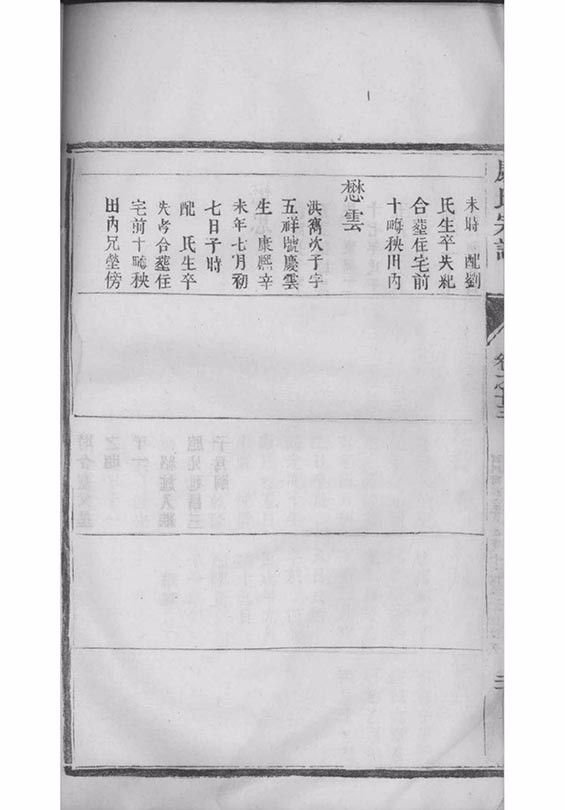 未時 配劉
氏生卒失紀
合塟住宅前
十畮秧田內
懋雲
洪寯次子字
五祥號慶雲
生 康熙辛
未年七月初
七日子時
配 氏生卒
失考合塟住
宅前十畮秧
田內兄塋傍
氏宗譜